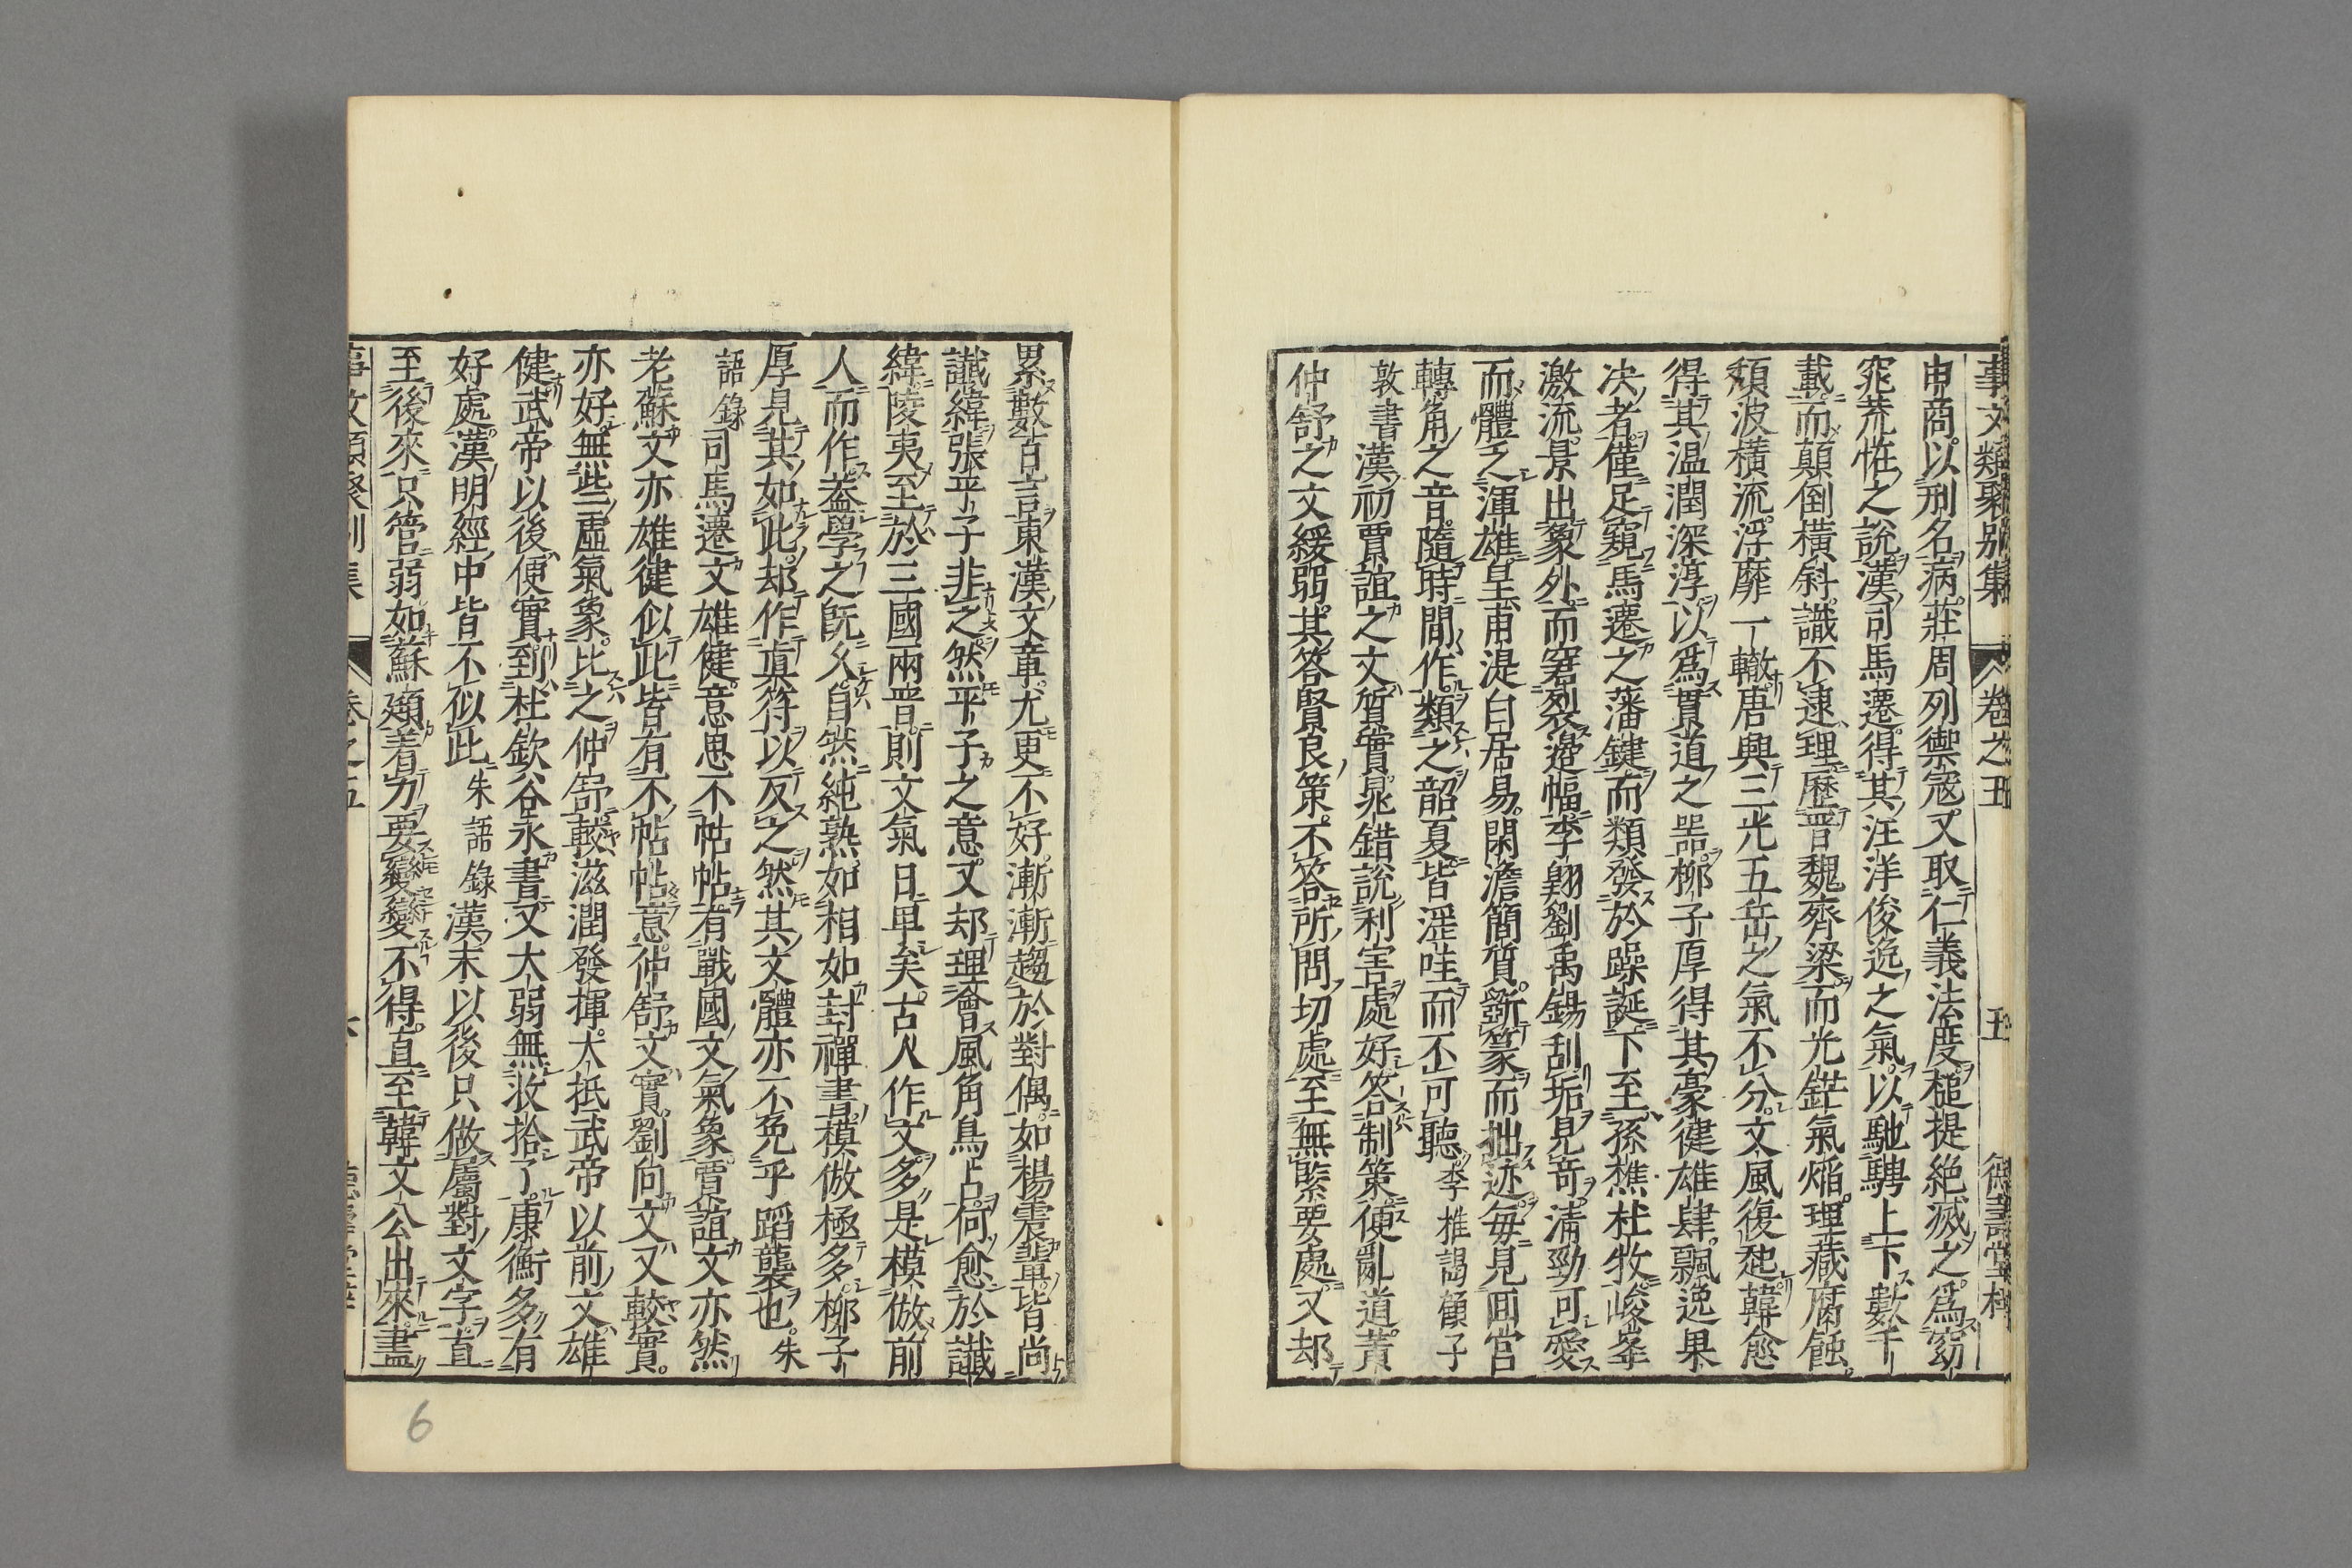 事文類聚別集 卷之五 五 德壽堂梓
申商以刑名病莊周列禦寇又取仁義法度槌提絶滅之爲窈
窕荒恠之說漢司馬遷得其汪洋俊逸之氣以馳騁上下數千
載而顛倒橫斜識不逮理歷晉魏齊梁而光鋩氣熖理藏腐蝕
頽波橫流浮靡一轍唐興三光五岳之氣不分文風復起韓愈
得其温潤深淳以爲貫道之噐柳子厚得其豪健雄肆飄逸果
决者僅足窺馬遷之藩鍵而類發於躁誕下至孫樵杜牧峻峯
激流景出象外而窘裂邉幅李翱劉禹錫刮垢見奇淸勁可愛
而體乏渾雄皇甫湜白居易閑澹簡質斵篆而拙迹每見囬宫
轉角之音隨時間作類之韶夏皆滛哇而不可聽 李推謁韻子
敦書 漢初賈誼之文質實晁錯說利害處好答制策便亂道董
仲舒之文緩弱其答賢良策不答所問切處至無緊要處又却
累數百言東漢文章尤更不好漸漸趨於對偶如楊震輩皆尚
讖緯張平子非之然平子之意又却理會風角鳥占何愈於讖
緯陵夷至於三國兩晋則文氣日卑矣古人作文多是模倣前
人而作葢學之旣久自然純熟如相如封禪書模倣極多柳子
厚見其如此却作眞符以反之然其文體亦不免乎蹈襲也 朱
語錄 司馬遷文雄健意思不帖帖有戰國文氣象賈誼文亦然
老蘇文亦雄健似此皆有不帖帖意仲舒文實劉向文又較實
亦好無些虛氣象比之仲舒較滋潤發揮大抵武帝以前文雄
健武帝以後便實到杜欽谷永書又大弱無收拾了康衡多有
好處漢明經中皆不似此 朱語錄 漢末以後只做屬對文字直
至後來只管弱如蘇頲着力要變變不得直至韓文公出來盡
事文類聚別集 卷之五